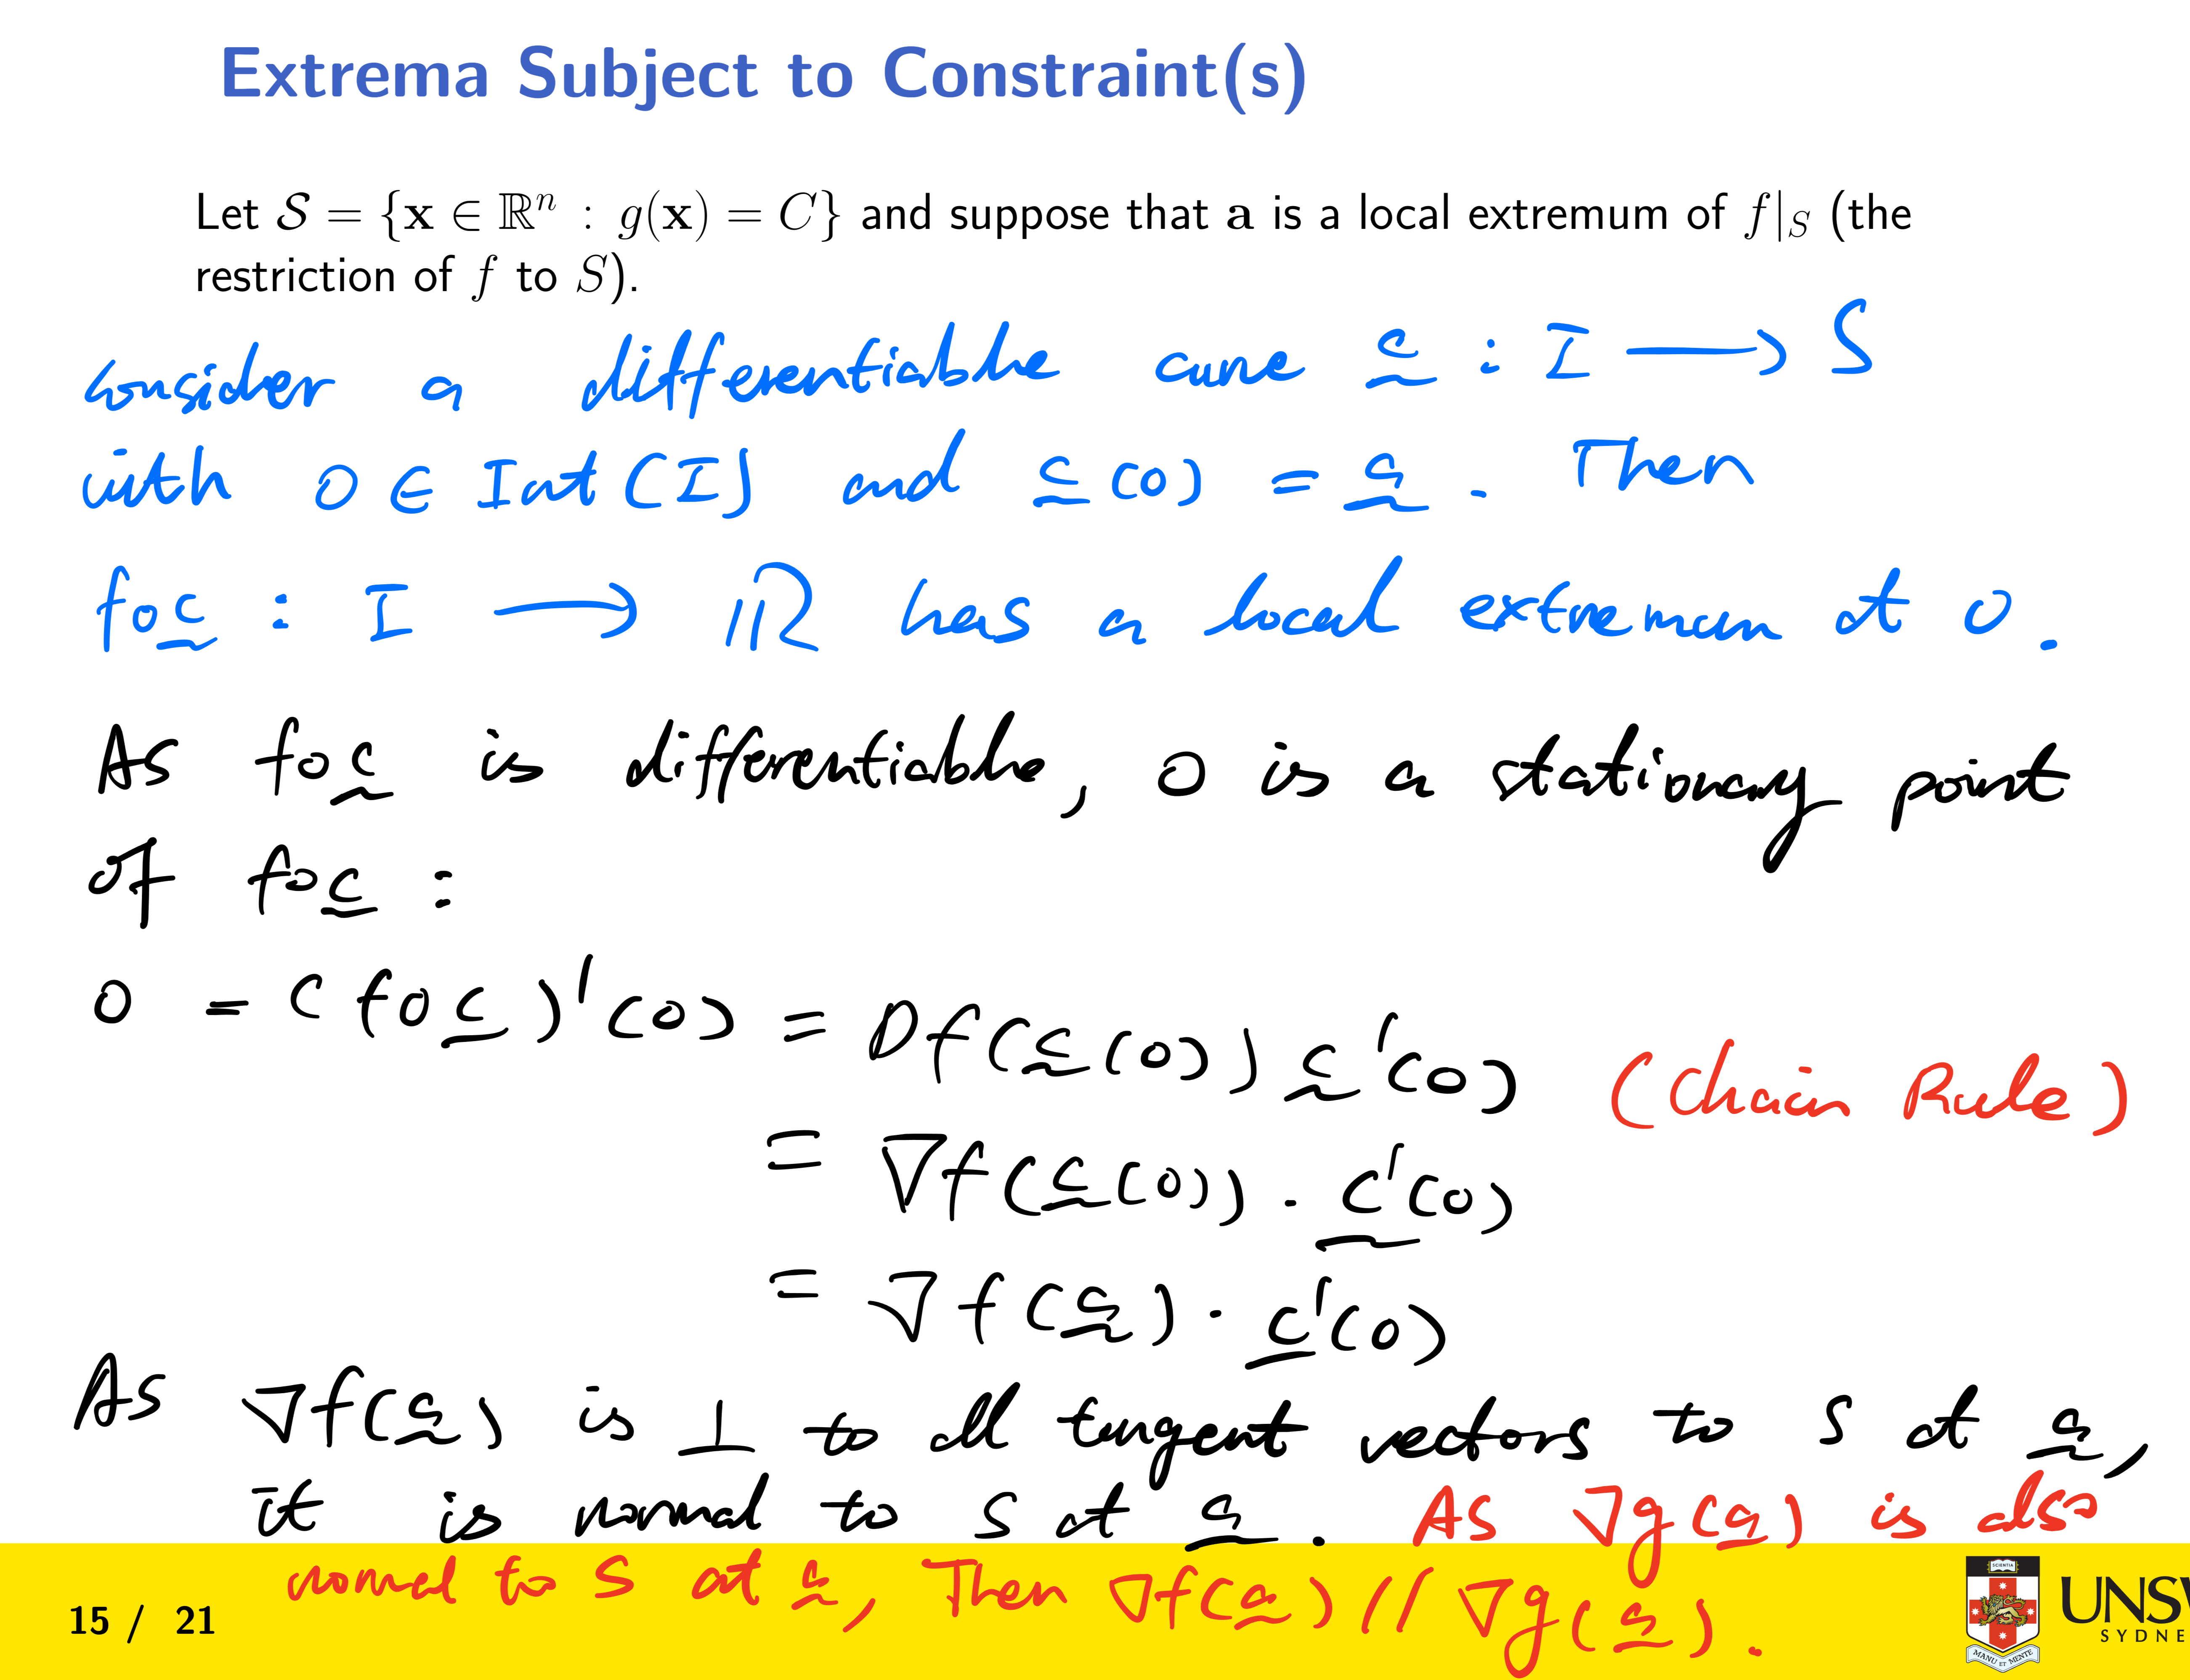 Extrema Subject to Constraint(s)
Let 𝒮 = {𝐱 ∈ ℝⁿ : g(𝐱) = C} and suppose that 𝐚 is a local extremum of f|_S (the
restriction of f to S).
consider a differentiable curve c̰ : I ⟶ S
with 0 ∈ Int(I) and c̰(0) = a̰ . Then
f∘c̰ : I ⟶ ℝ has a local extremum at 0.
As f∘c̰ is differentiable, 0 is a stationary point
of f∘c̰ :
0 = (f∘c̰)'(0) = Df(c̰(0)) c̰'(0) (Chain Rule)
= ∇f(c̰(0)) · c̰'(0)
= ∇f(a̰) · c̰'(0)
As ∇f(a̰) is ⊥ to all tangent vectors to S at a̰,
it is normal to S at a̰. As ∇g(a̰) is also
normal to S at a̰, Then ∇f(a̰) // ∇g(a̰).
15 / 21
SCIENTIA
MANU ET MENTE
UNSW
SYDNE